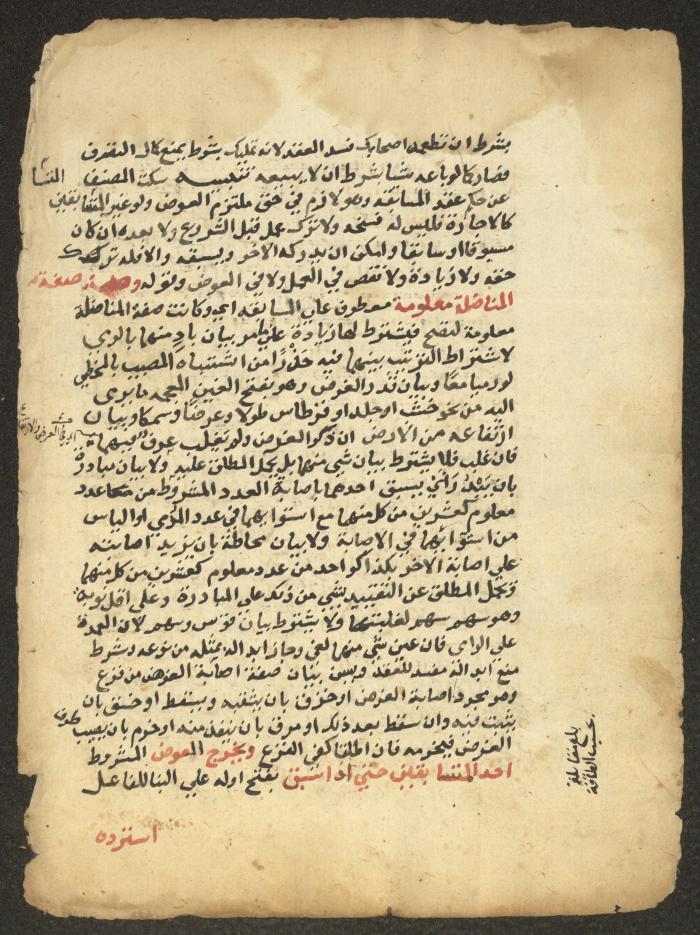 بشرط ان تطعمه اصحابك فسد العقد لانه تمليك بشرط يمنع كمال التصرف
فصار كما لو باعه شيا بشرط ان لا يبيعه تنبيه سكت المصنف
عن حكم عقد المسابقة وهو لازم في حق ملتزم العوض ولو غير المتسابقين
كالاجارة فليس له فسخه ولا ترك عمل قبل الشروع ولا بعده ان كان
مسبوقا او سابقا وامكن ان يدركه الاخر ويسبقه والا فله ترك
حقه ولا زيادة ولا نقص في العمل ولا في العوض وقوله وصفة
المناضلة معلومة معطوف علي المسابقة اي وكانت صفة المناضلة
معلومة لتصح فيشترط لها زيادة علي ما مر بيان بادٍ منهما بالرمي
لاشتراط الترتيب بينهما فيه حذرًا من اشتباه المصيب بالمخطي
لو رميا معًا وبيان قدر الغرض وهو بفتح الغين المعجمه ما يرمى
اليه من نحو خشب او جلد او قرطاس طولا وعرضًا وسمكا وبيان
ارتفاعه من الارض ان ذكر الغرض ولم يغلب عرف فيهما
فان غلب فلا يشترط بيان شي منهما بل يحمل المطلق عليه ولا بيان مبادرة
بان يبدر اي يسبق احدهما باصابة العدد المشروط من عدد
معلوم كعشرين من كل منهما مع استوائهما في عدد الرمي او الياس
من استوائهما في الاصابة ولا بيان محاطة بان يزيد اصابته
علي اصابة الاخر بكذا كواحد من عدد معلوم كعشرين من كل منهما
ويحمل المطلق عن التقييد بشي من ذلك علي المبادرة وعلى اقل نوبه
وهو سهم سهم لغلبتهما ولا يشترط بيان قوس وسهم لان العمدة
علي الرامي فان عين شي منهما لغي وجاز ابداله بمثله من نوعه وشرط
منع ابداله مفسد للعقد ويسن بيان صفة اصابة الغرض من قرع
وهو مجرد اصابة الغرض او خزق بان يثقبه ويسقط او خسق بان
يثبت فيه وان سقط بعد ذلك او مرق بان ينفذ منه او خرم بان يصيب طرف
الغرض فيخرمه فان اطلقا كفي القرع ويخرج العوض المشروط
احد المتسابقين حتي اذا سبق بفتح اوله علي البنا للفاعل
استرده
بلغ مقابلة